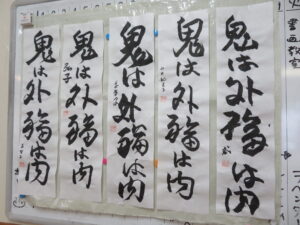 鬼は外福は内
鬼は外福は内
鬼は外福は内
鬼は外福は内
鬼は外福は内